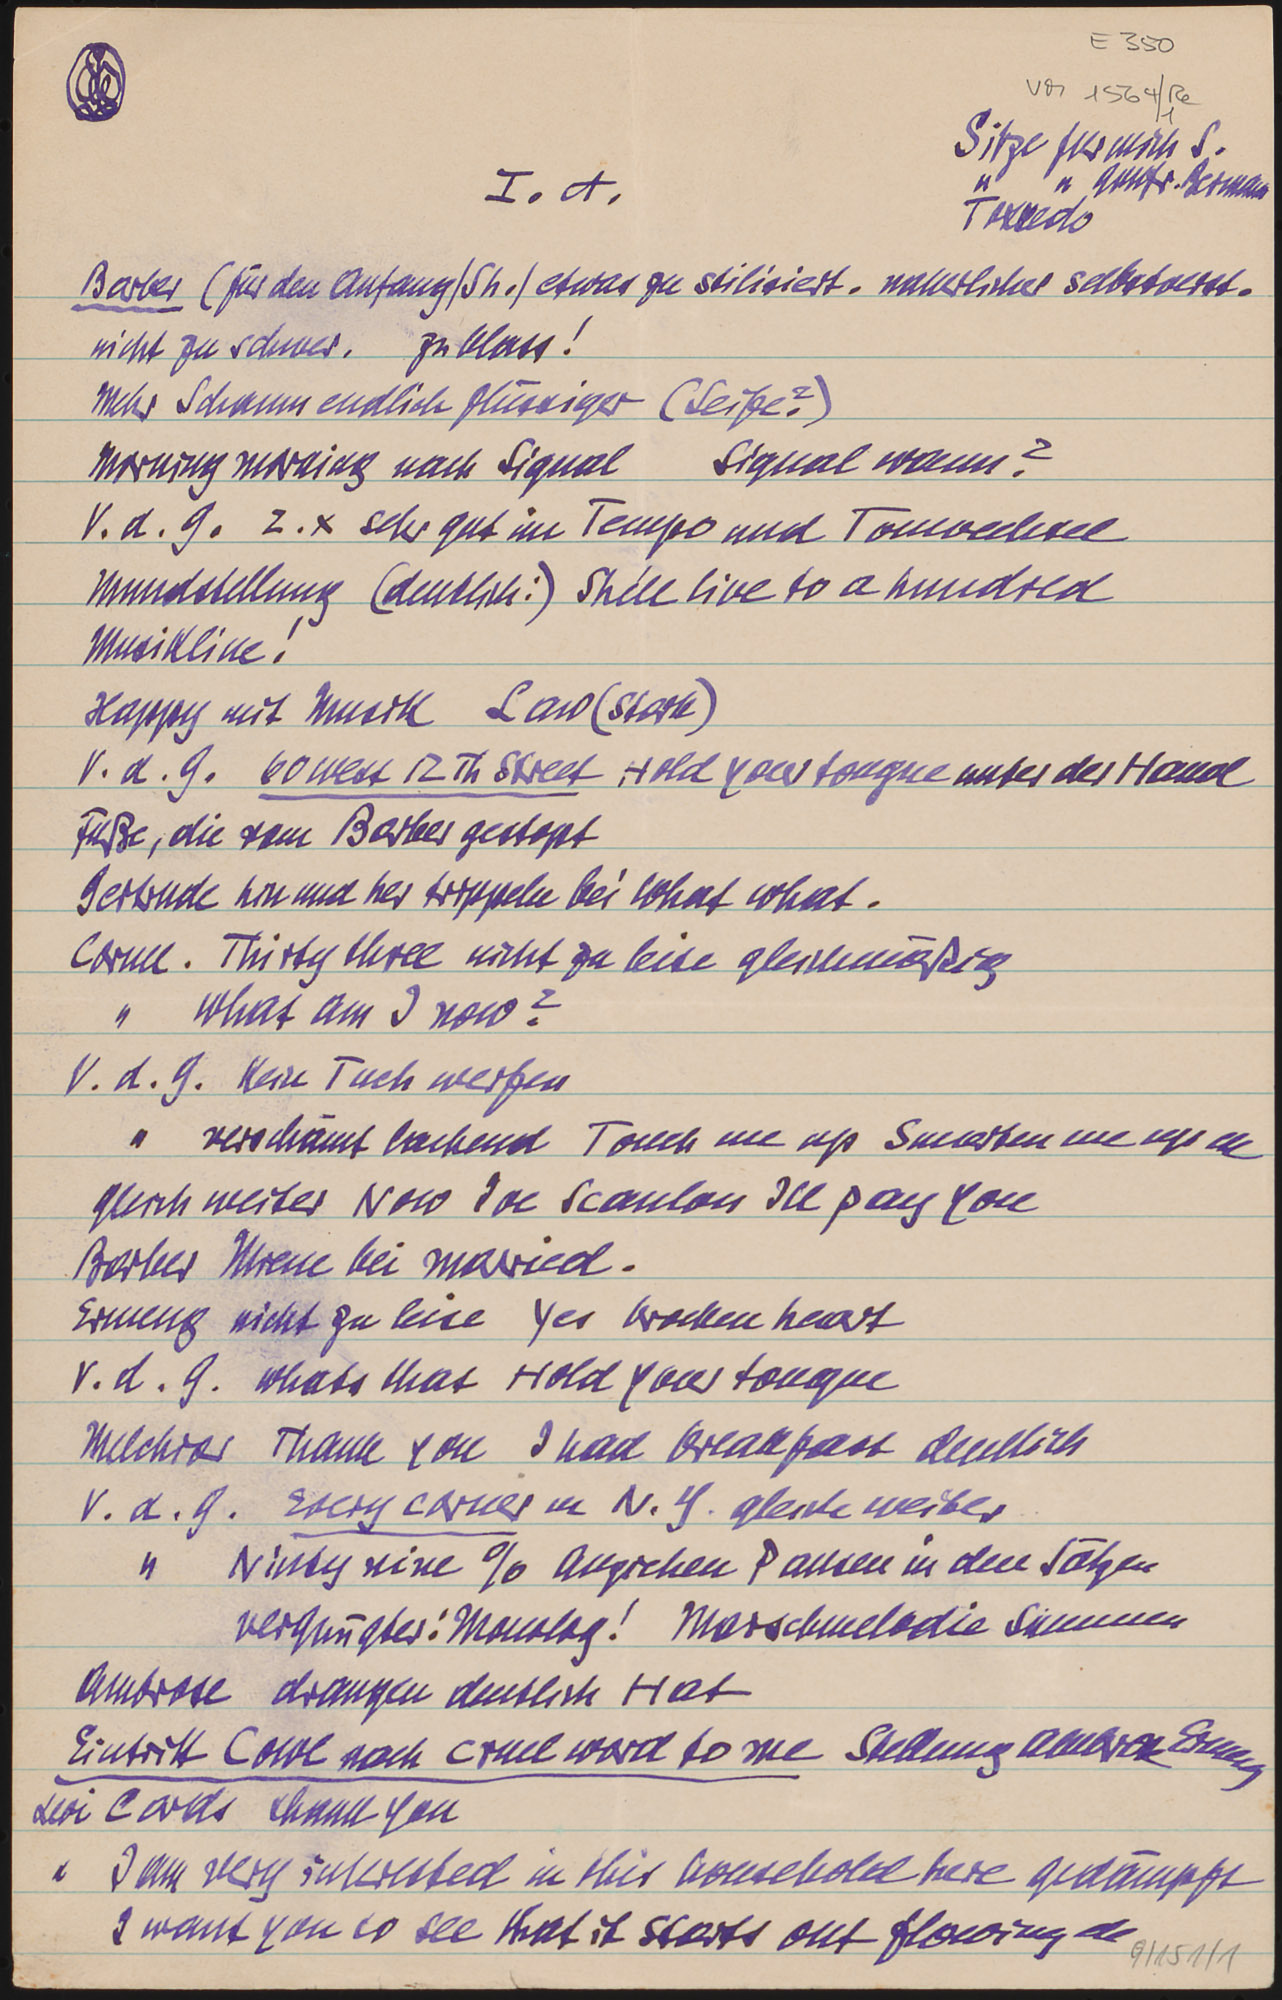 E 350
1564/Re
1
Sitze fuer mich S.
" " Gottfr. Bermann
Tuxedo
I. A.
Barber (für den Anfang/Sh./ etwas zu stilisiert. natuerlicher selbstverst.
nicht zu schwer. zu blass!
Mehr Schaum endlich flüssiger (Seife?)
Morning morning nach Signal Signal wann?
V. d. G. 2. x sehr gut im Tempo und Tonwechsel
Mundstellung (deutlich:) She'll live to a hundred
Musikline!
Happy mit Musik Law (stark)
V. d. G. 60 west 12 Th Street Hold your tongue unter der Hand
Füße, die vom Barber gestopt
Gertrude hin und her trippeln bei what what.
Cornel. Thirty three nicht zu leise gleichmäßig
" What am I now?
V. d. G. Kein Tuch werfen
" verschämt lachend Touch me up Smarten me up
gleich weiter Now Joe Scanlon Ill pay you
Barber Miene bei married.
Ermeng nicht zu leise Yes broken heart
V. d. G. Whats that Hold your tongue
Melchior Thank you I had breakfast deutlich
V. d. G. Every corner in N. Y. gleich weiter
" Ninty nine % Angichen Pausen in den Sätzen
vergnügter! Monolog! Marschmelodie Summen
Ambrose draussen deutlich Hat
Eintritt Cowl nach cruel word to me Stellung Ambrose Ermeng
Levi Cards thank you
" I am very interested in this household here gedämpft
I want you to see that it starts out flowing
9/151/1